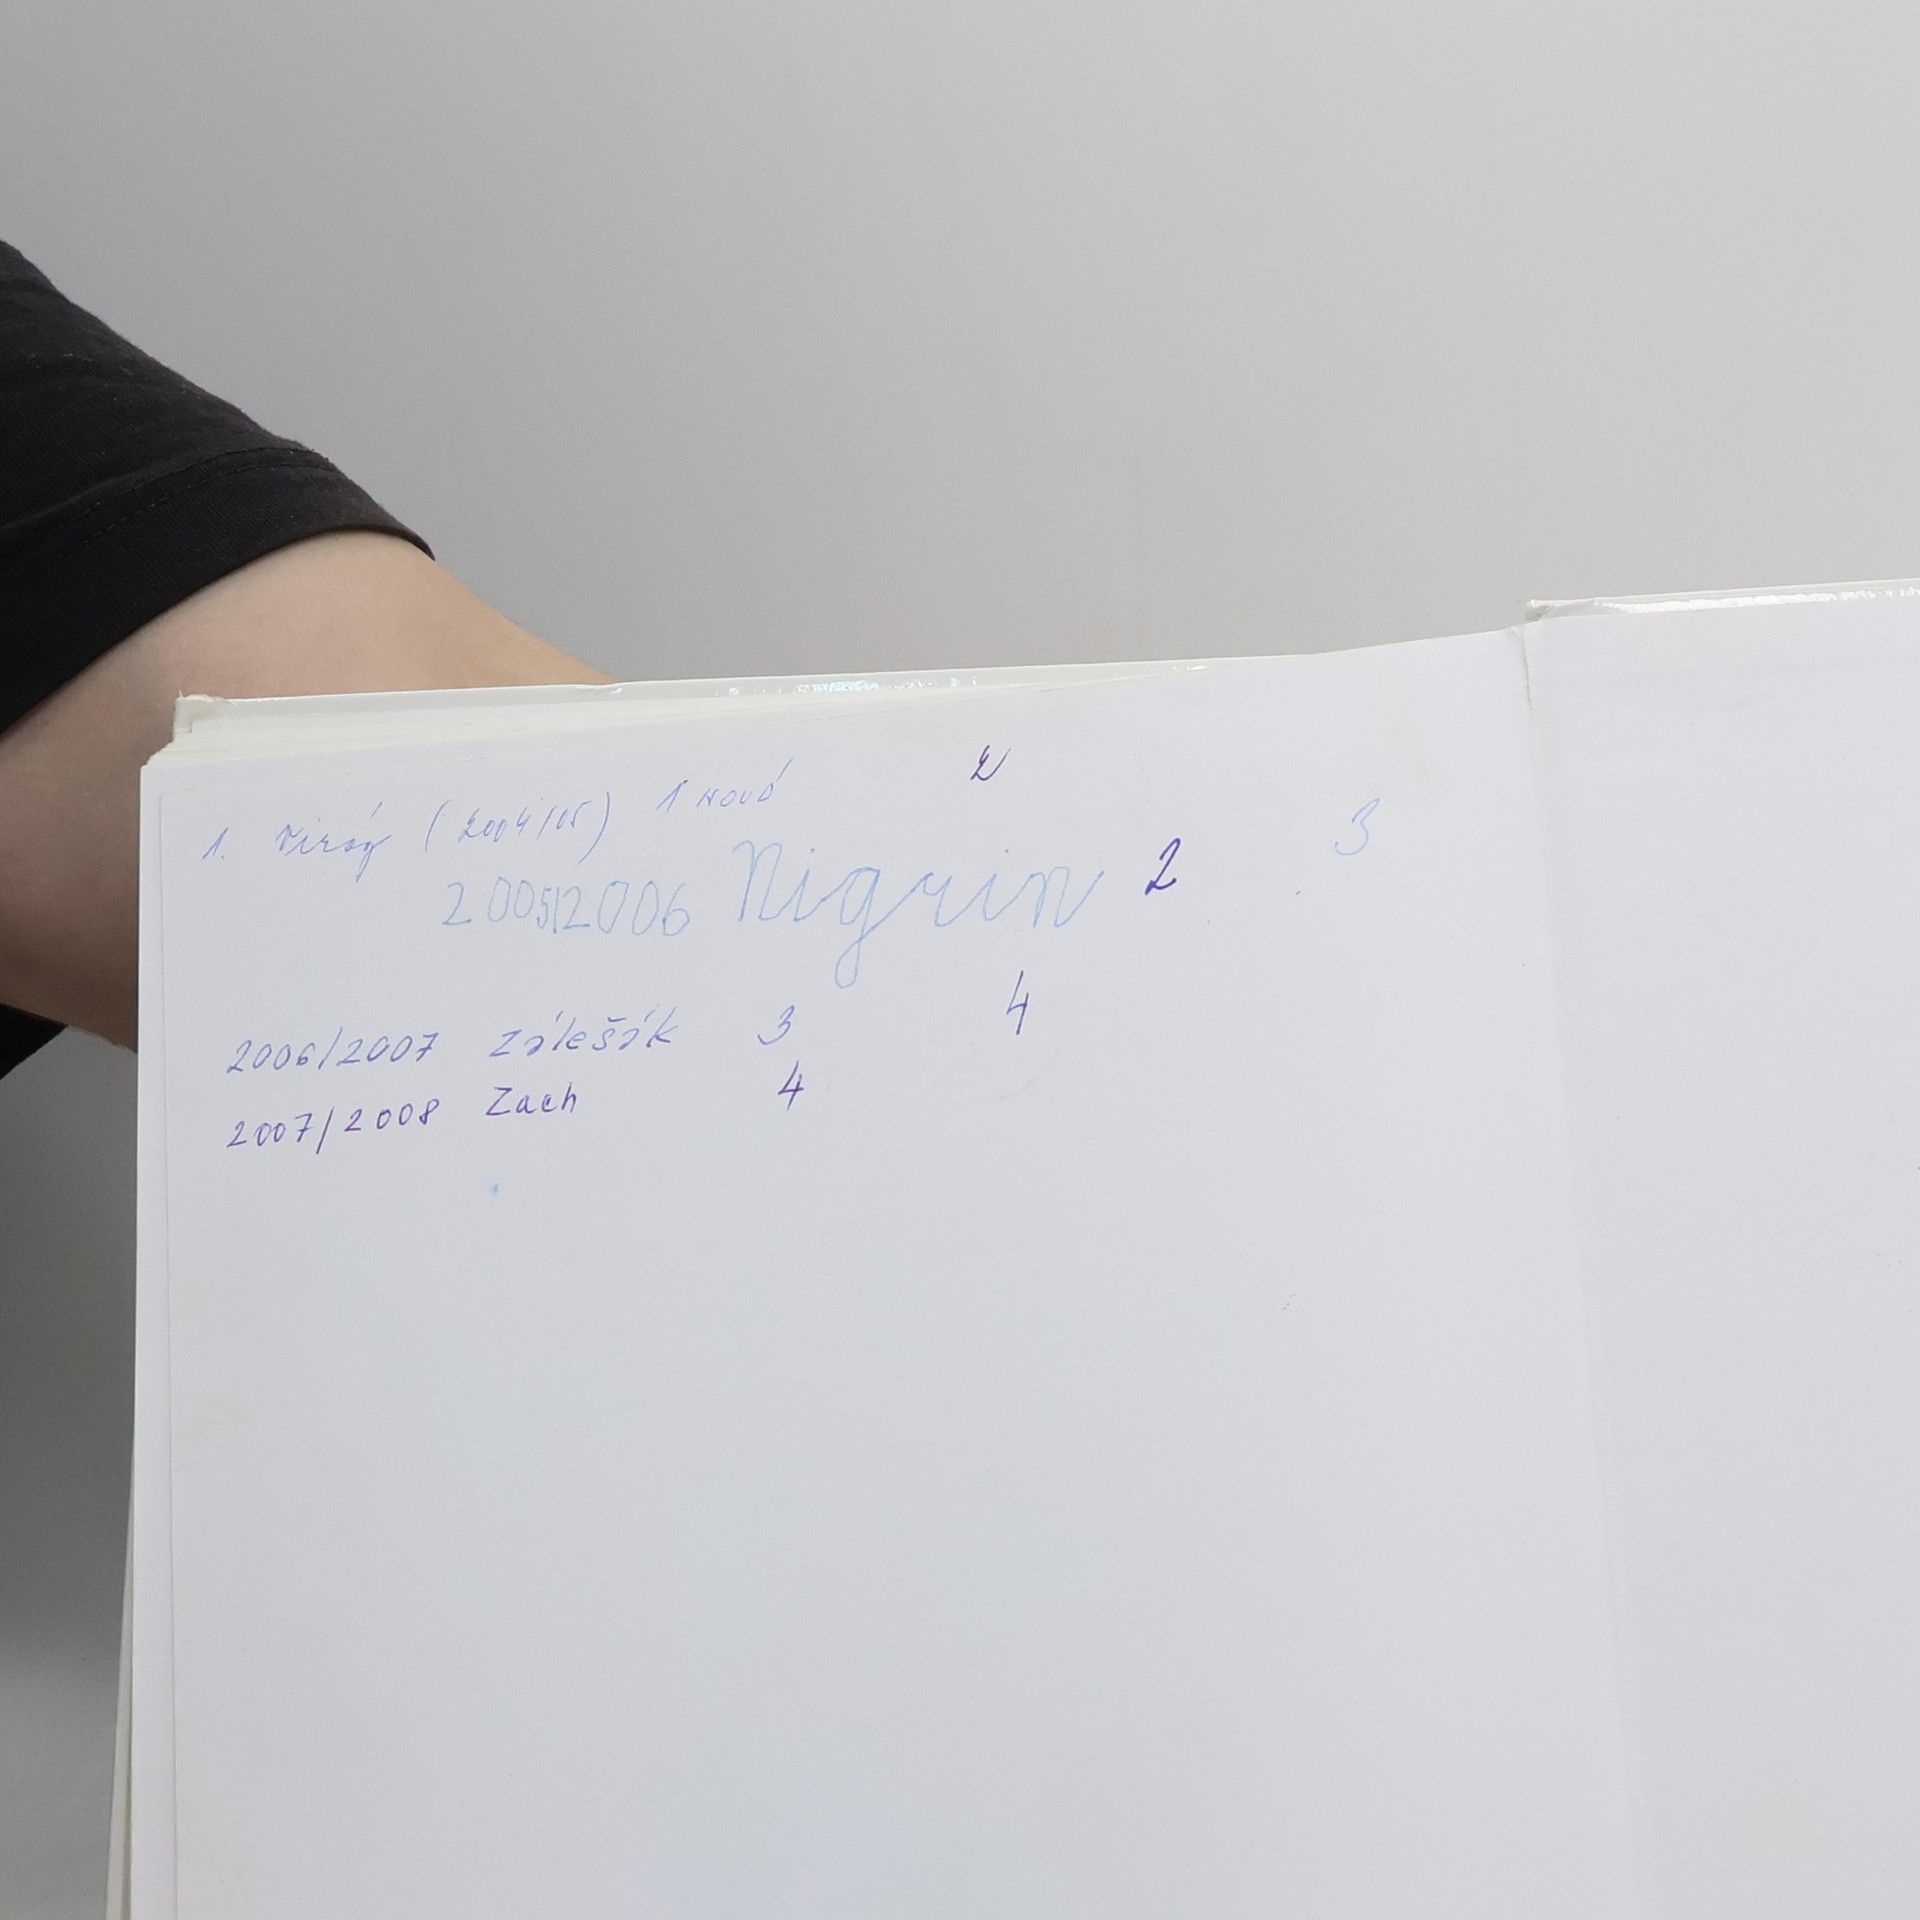 1. Virág (2004/05) 1 nová 2
2005/2006 Nigrin 2 3
2006/2007 Zálešák 3 4
2007/2008 Zach 4